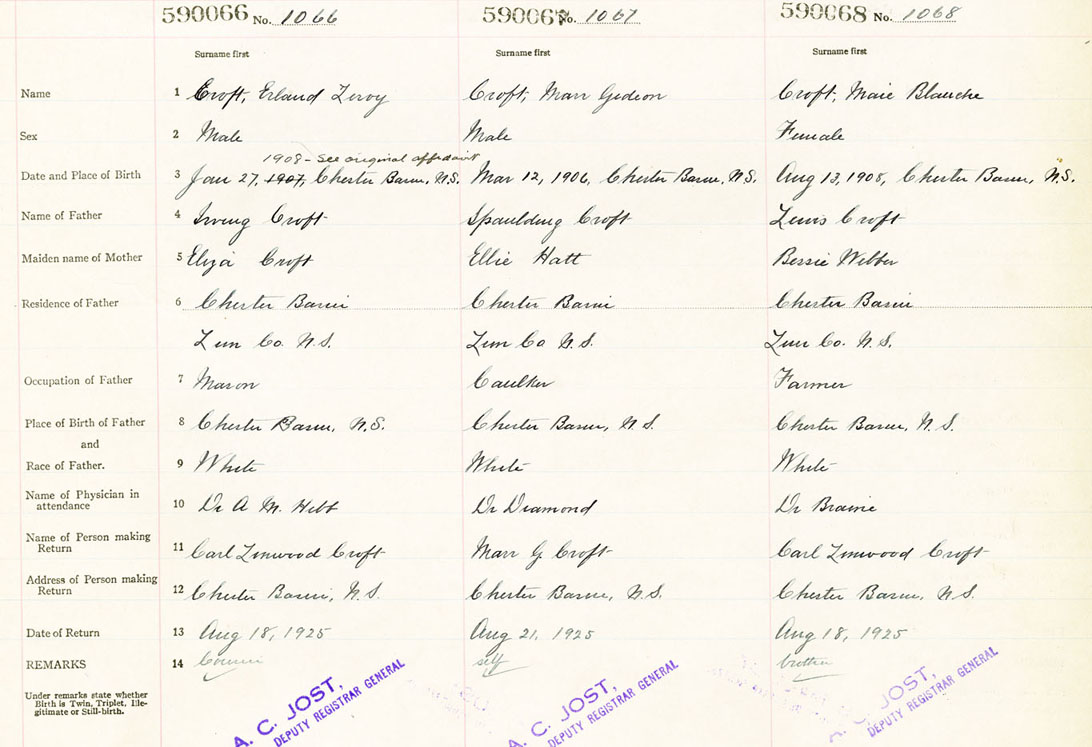 590066 No. 1066 590067 No. 1067 590068 No. 1068
Surname first Surname first Surname first
Name 1 Croft, Erland Leroy Croft, Marr Gedeon Croft, Maie Blanche
Sex 2 Male Male Female
1908 - see original affidavit
Date and Place of Birth 3 Jan 27, 1907, Chester Basin, N.S. Mar 12, 1906, Chester Basin, N.S. Aug 13, 1908, Chester Basin, N.S.
Name of Father 4 Irving Croft Spaulding Croft Lewis Croft
Maiden name of Mother 5 Eliza Croft Ellie Hatt Bessie Webber
Residence of Father 6 Chester Basin Chester Basin Chester Basin
Lun Co. N.S. Lun Co N.S. Lun Co. N.S.
Occupation of Father 7 Mason Caulker Farmer
Place of Birth of Father 8 Chester Basin, N.S. Chester Basin, N.S. Chester Basin, N.S.
and
Race of Father. 9 White White White
Name of Physician in
attendance 10 Dr A. M. Hebb Dr Diamond Dr Braine
Name of Person making
Return 11 Carl Linwood Croft Marr G Croft Carl Linwood Croft
Address of Person making
Return 12 Chester Basin, N.S. Chester Basin, N.S. Chester Basin, N.S.
Date of Return 13 Aug 18, 1925 Aug 21, 1925 Aug 18, 1925
REMARKS 14 Cousin self brother
Under remarks state whether
Birth is Twin, Triplet, Ille-
gitimate or Still-birth.
A. C. JOST,
DEPUTY REGISTRAR GENERAL
A. C. JOST,
DEPUTY REGISTRAR GENERAL
A. C. JOST,
DEPUTY REGISTRAR GENERAL